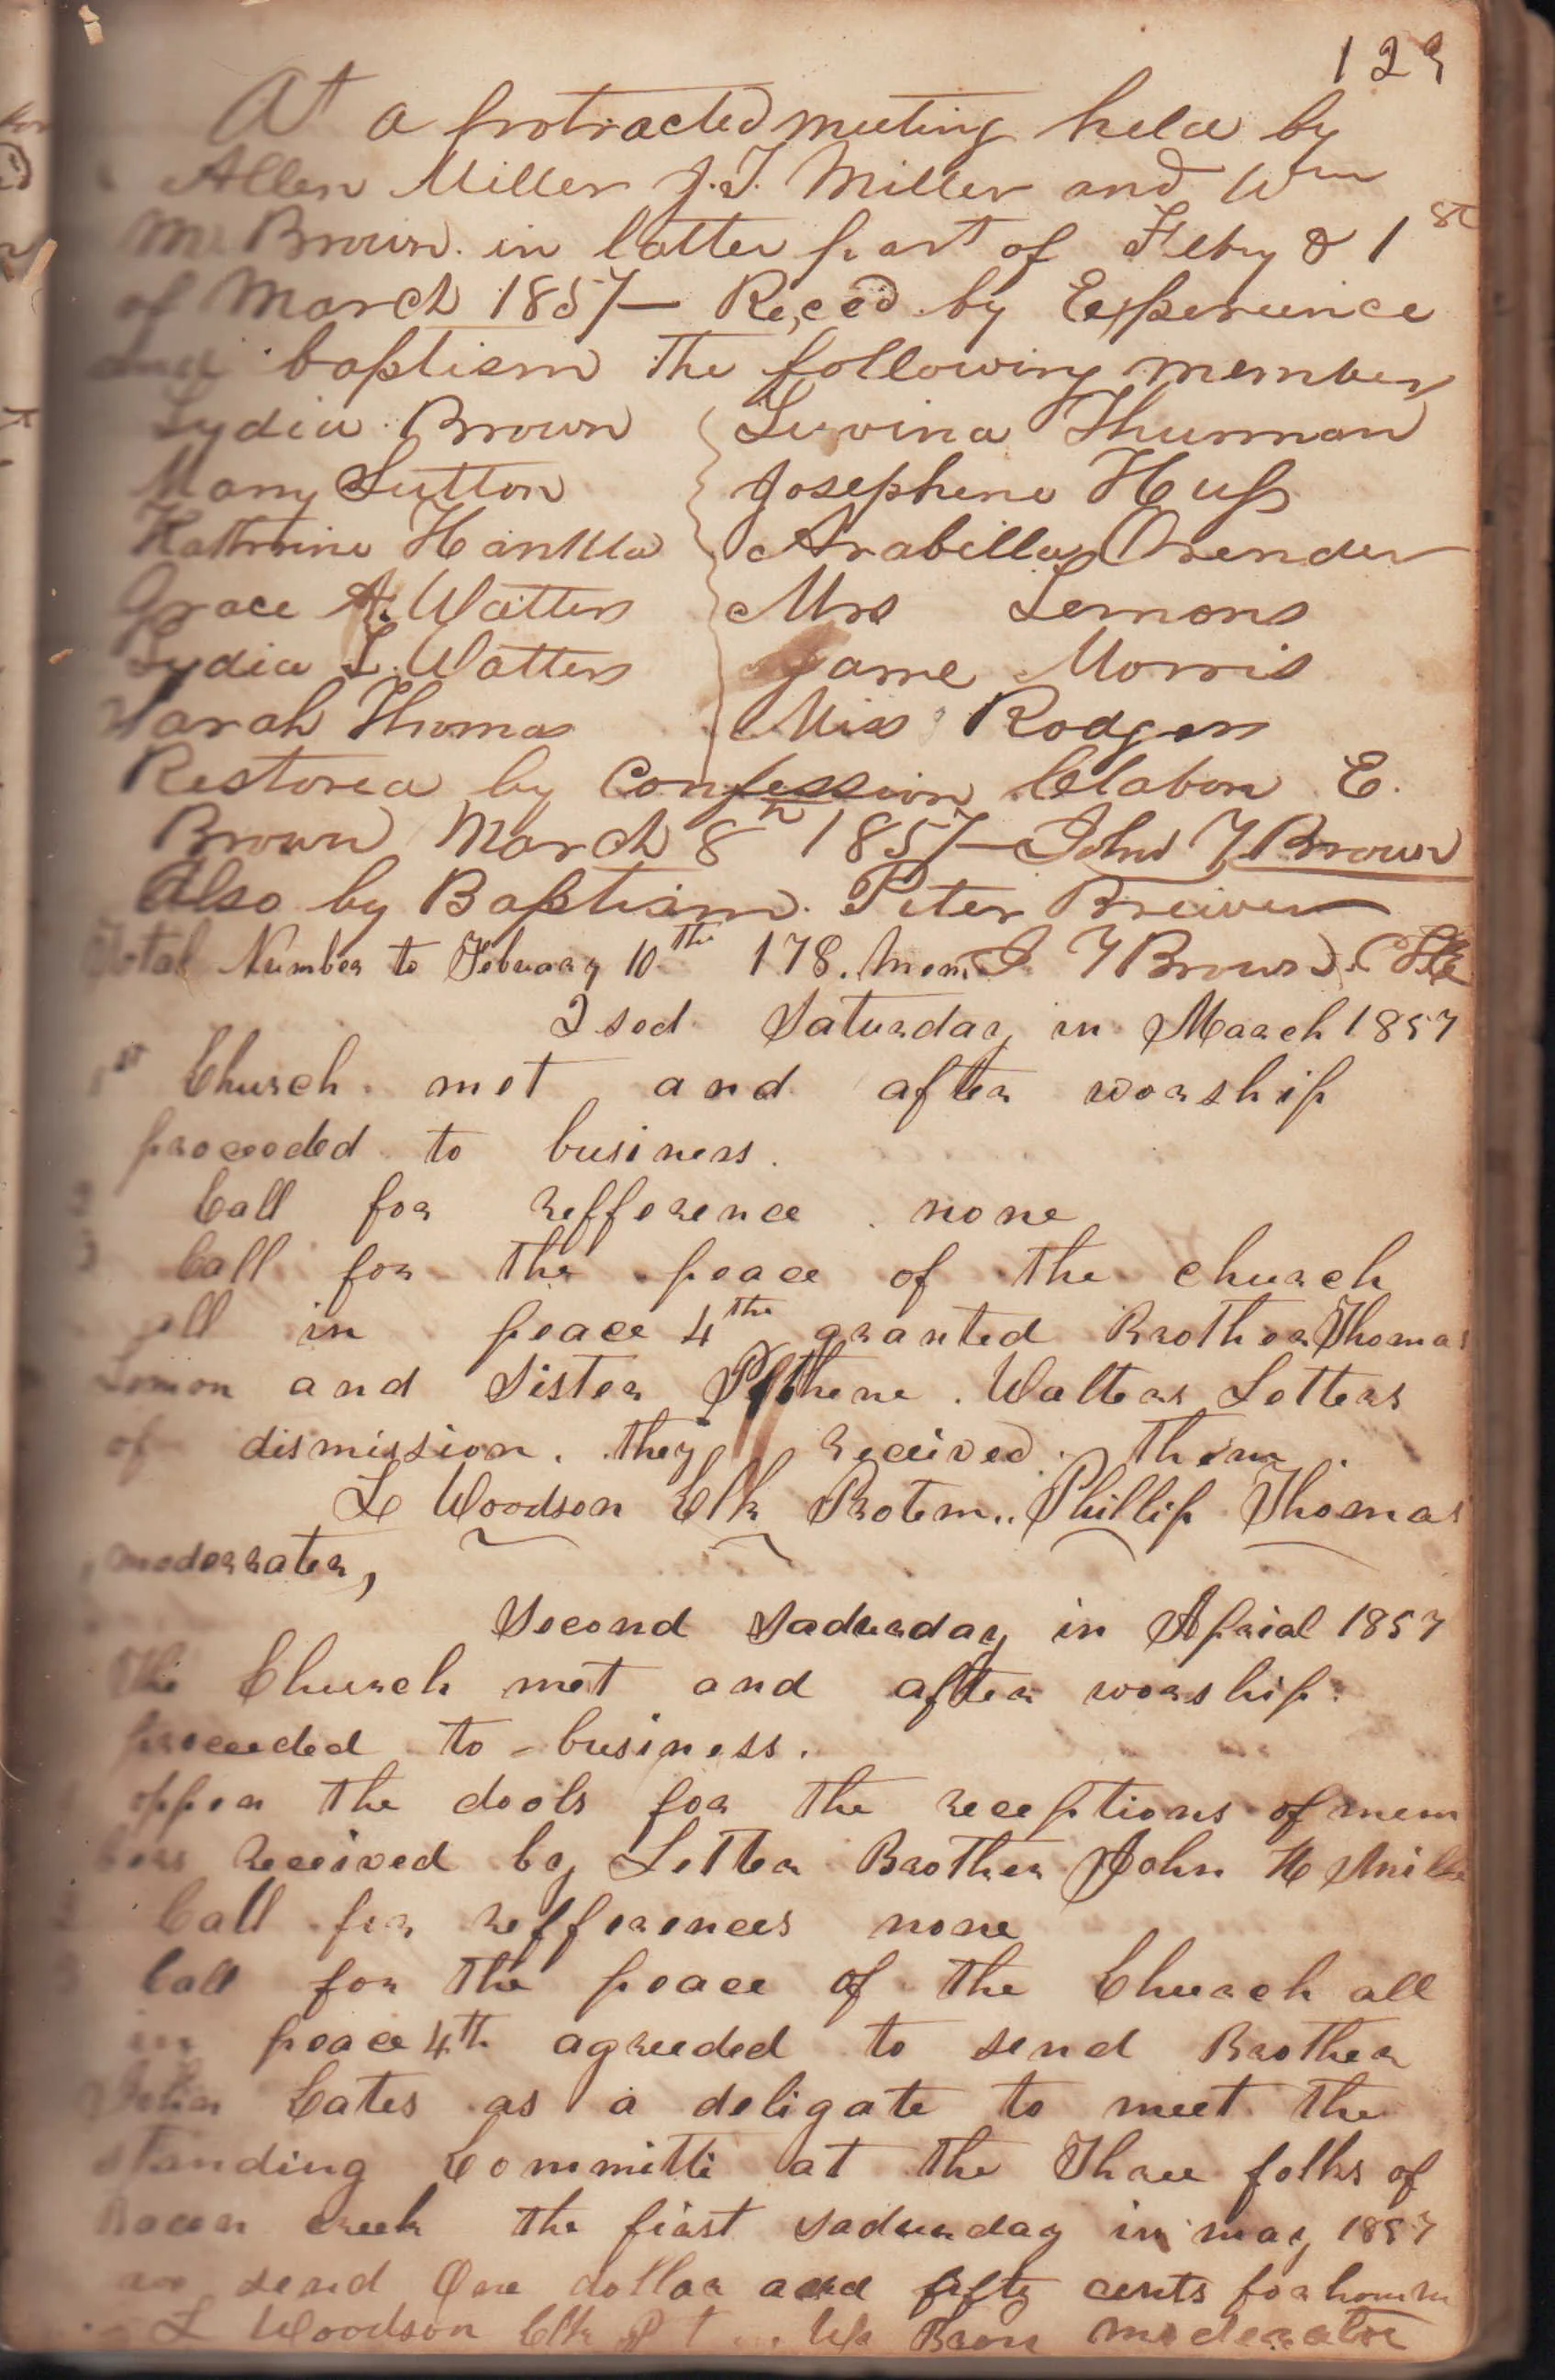 129
At a protracted meeting held by
Allen Miller J. T. Miller and Wm
M. Brown. in latter part of Feby & 1st
of March 1857 — Reced by Experience
and baptism the following members
Lydia Brown
Mary Sutton
Grace A. Watters
Lydia L. Watters
Sarah Thomas
Luvina Thurman
Josephene Huss
Arabella Orender
Mrs Lemons
Jame Morris
Miss Rodgers
Restored by Confession Clabon E.
Brown March 8th 1857 — John Y Brown
Also by Baptism. Peter Brewer
Total Number to Febuary 10th 178. Mem J. Y Brown Clk
2sod Saturday in March 1857
1st Church met and after worship
proceeded to business.
Call for refference none
Call for the peace of the church
all in peace 4the granted Brother Thomas
Lemon and Sister Walters Letters
of dismission. they received them.
L Woodson Clk Protem.. Phillip Thomas
moderrater,
Second Sadurday in Aprial 1857
The Church met and after worship
proceeded to business.
oppen the dools for the receptions of mem
bers received by Letter Brother John H Mille
Call for refferences none
Call for the peace of the Church all
in peace 4th agreeded to send Brother
Cates as a deligate to meet the
standing Committi at the Three folks of
Bacon creek the first sadurday in may 1857
send One dollar and fifty cents for
L Woodson Clk P t Wm Brown moderator